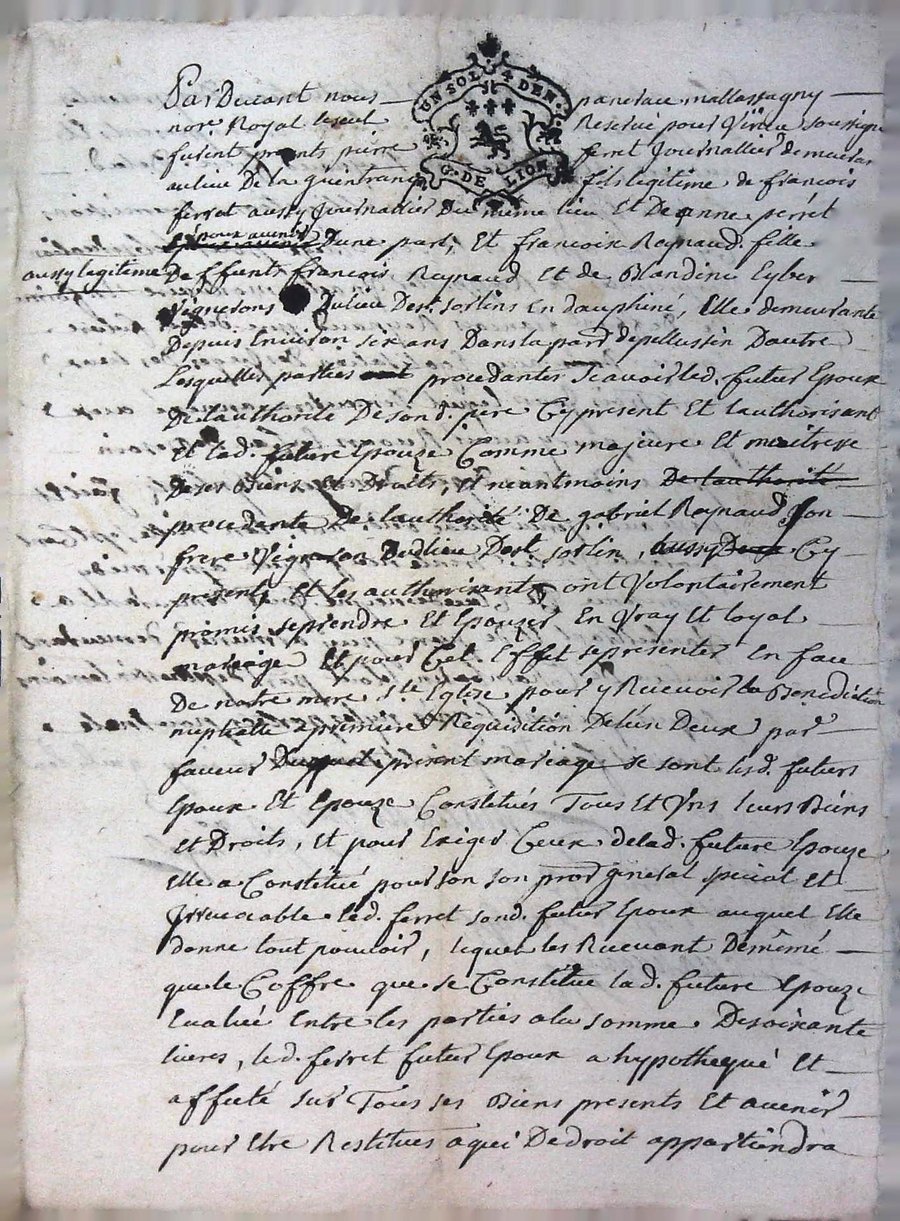 UN SOL 4 DEN.
G. DE LION
Pardevant nous pancrace mallassagny
nore Royal Reservé pour Virieu soussigné
furent pnts pierre ferret Journallier demeurant
au lieu de la fils legitime de francois
ferret aussy Journallier Du même lieu Et De anne perret
pour avenir Dune part, Et francoise Raynaud fille
aussy legitime De ffeunts francois Raynaud Et de Blandine Eyber
Vignerons Du lieu De st. sorlins En dauphiné, Elle demeurante
Depuis Environ six ans Dans la parr de pellussin Dautre
Lesquelles parties procedantes scavoir led. futur Epoux
De lauthorité De sond. pere Cy present Et lauthorisant
Et lad. future Epouze Comme majeure Et maitresse
De ses Biens Et Droits, Et neantmoins De lauthorité
procedante De lauthorité De gabriel Raynaud son
frere Vigneron Dud lieu De st. sorlin, aussy Cy
present Et les authorisants ont Volontairement
promis se prendre Et Epouzer En Vray Et loyal
mariage Et pour Cet Effet se presenter En face
De notre mere ste Eglise pour y Recevoir la Benediction
nuptialle a premiere Requisition De lun Deux par
faveur Duquel present mariage se sont lesd. futurs
Epoux Et Epouze Constitués Tous Et Uns leurs Biens
Et Droits, Et pour Exiger Ceux de lad. future Epouze
Elle a Constitué pour son son pror general special Et
Irrevocable led. ferret sond. futur Epoux auquel Elle
donne tout pouvoir, lequel les Recevant De même
que le Coffre que se Constitüe lad. future Epouze
Evalué Entre les parties a la somme De soixante
livres, led. ferret futur Epoux a hypothequé Et
affecté sur Tous ses Biens presents Et avenir
pour Etre Restitues a qui De droit appartiendra